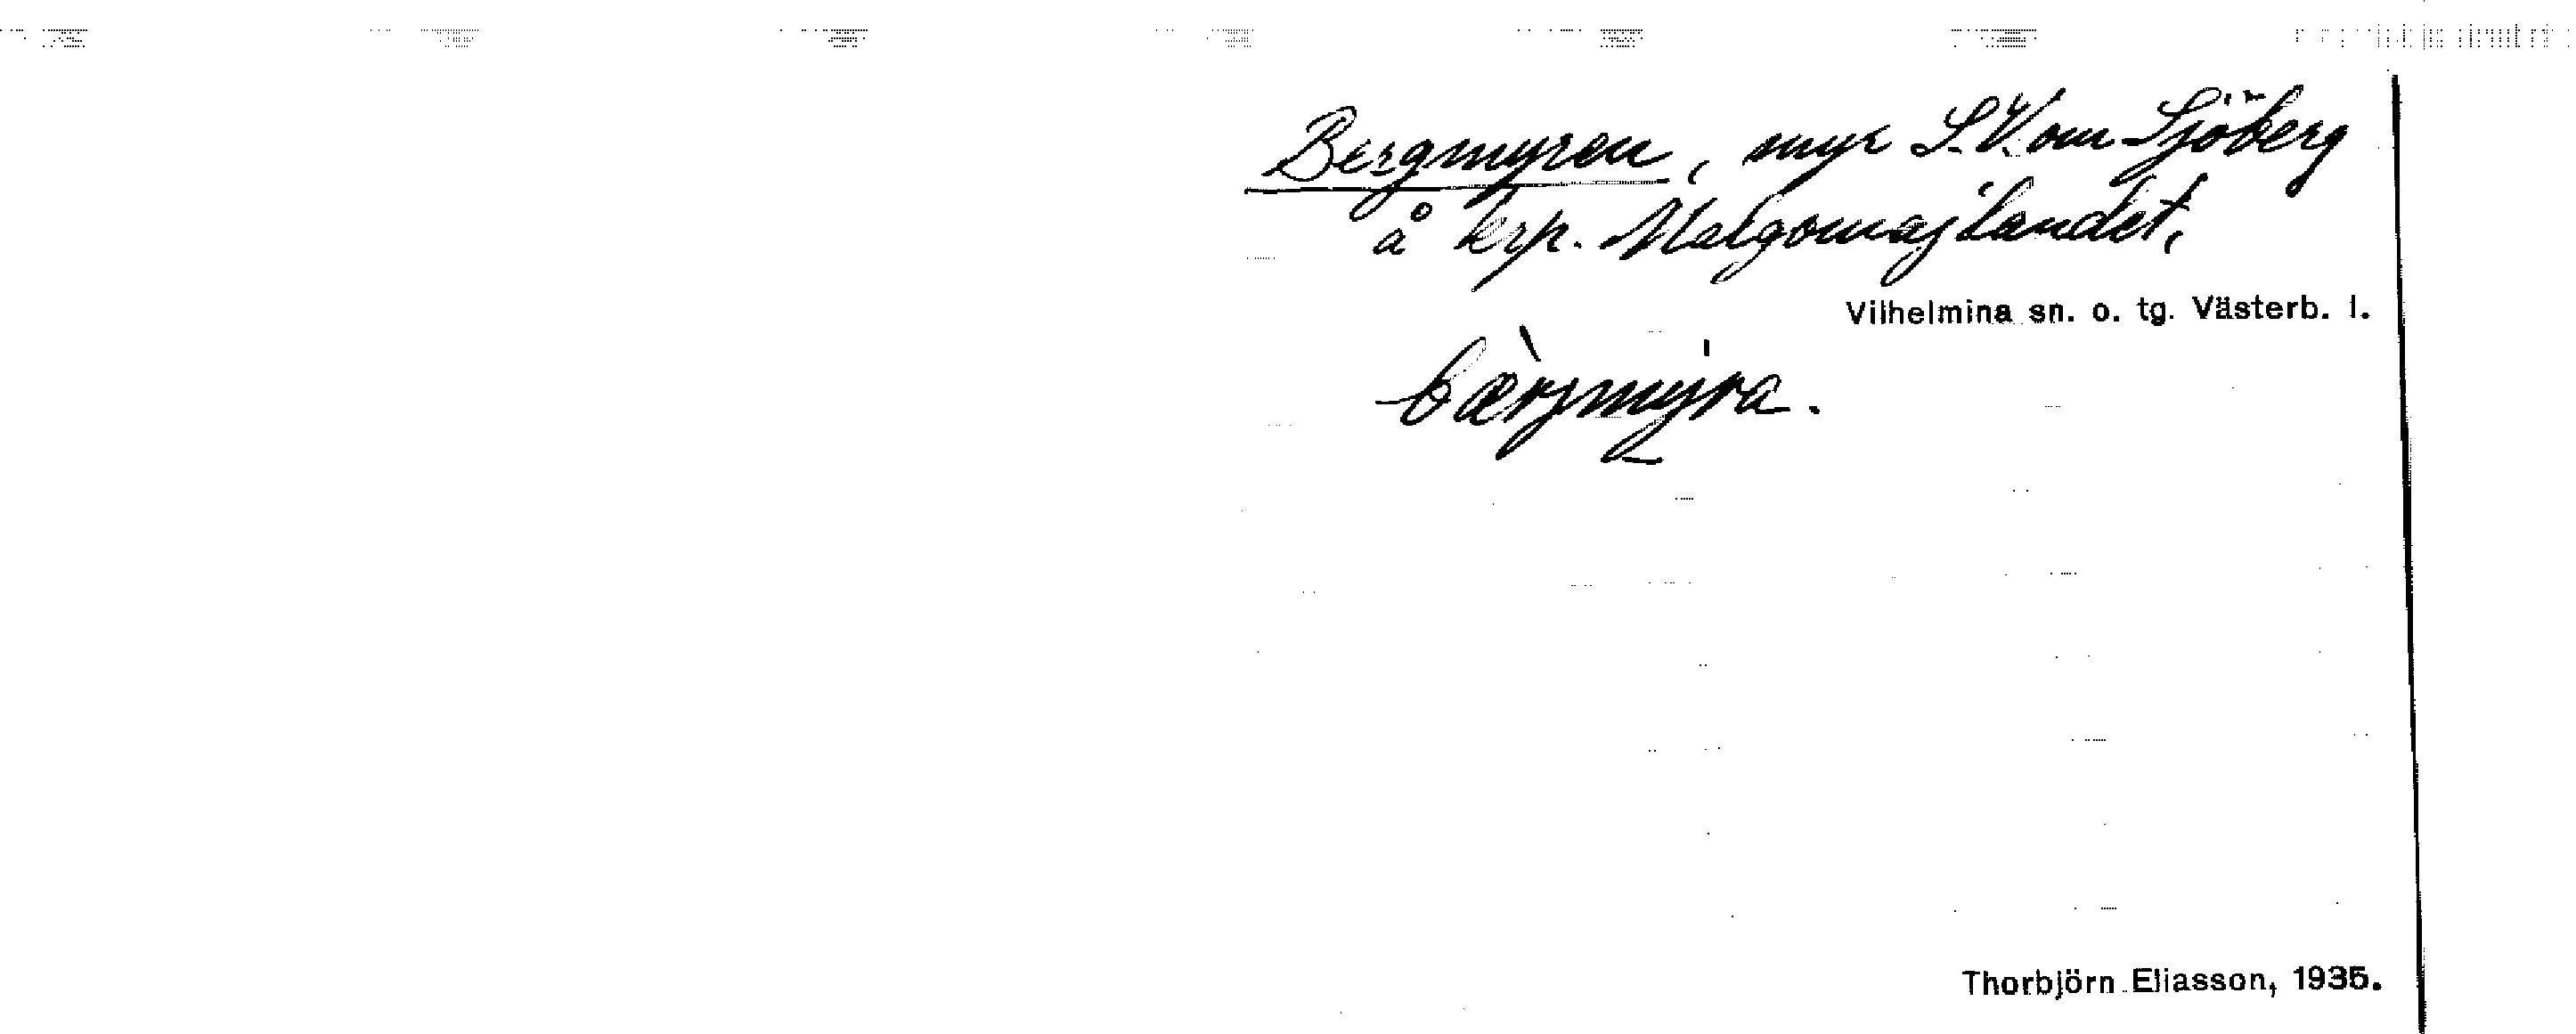 Bergmyren, myr S.V. om Sjöberg
å krp. Malgomajlandet,
Vilhelmina sn. o. tg. Västerb. l.
bæ̀rjmýra.
Thorbjörn Eliasson, 1935.